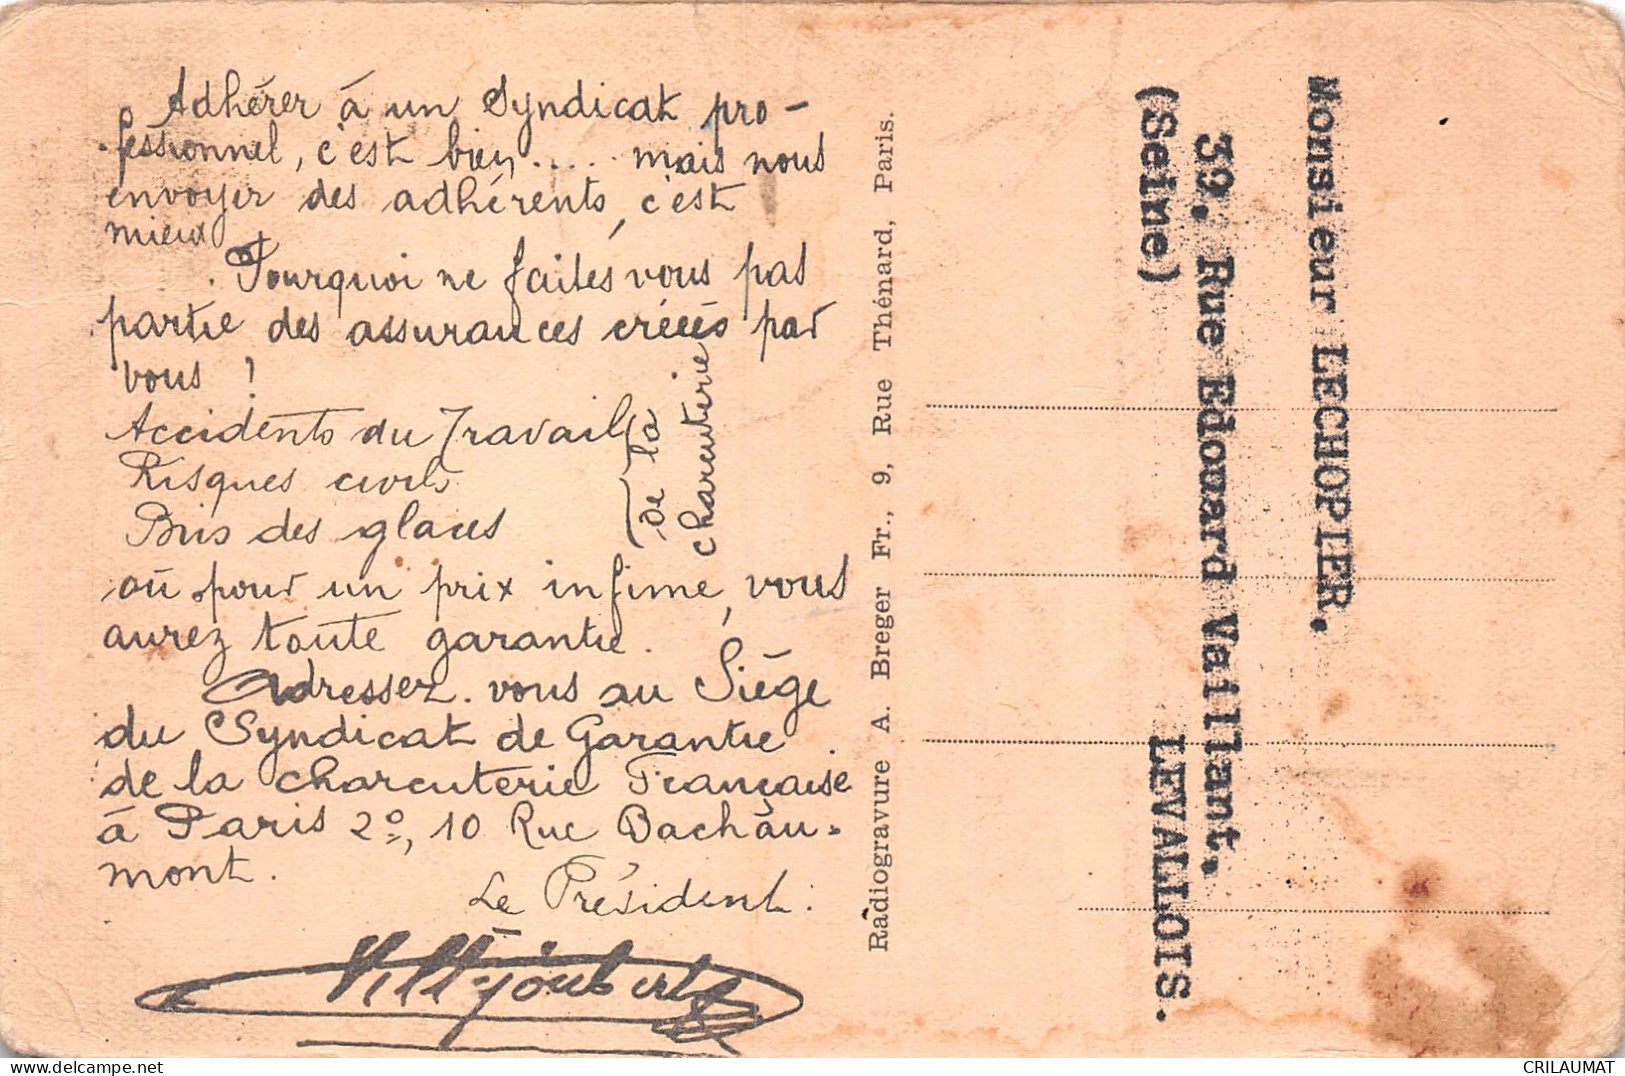 Adhérer à un Syndicat pro-
fessionnel, c'est bien.... mais nous
envoyer des adhérents, c'est
mieux
Pourquoi ne faites vous pas
partie des assurances créées par
vous ?
Accidents du Travail
Risques civils
Bris des glaces
de la
charcuterie
où pour un prix infime, vous
aurez toute garantie.
Adressez-vous au Siège
du Syndicat de Garantie
de la charcuterie Française
à Paris 2º, 10 Rue Bachau-
mont.
Le Président:
Radiogravure A. Breger Fr., 9, Rue Thénard, Paris.
Monsieur LECHOPIER.
39, Rue Edouard Vaillant.
LEVALLOIS.
(Seine)
CRILAUMAT